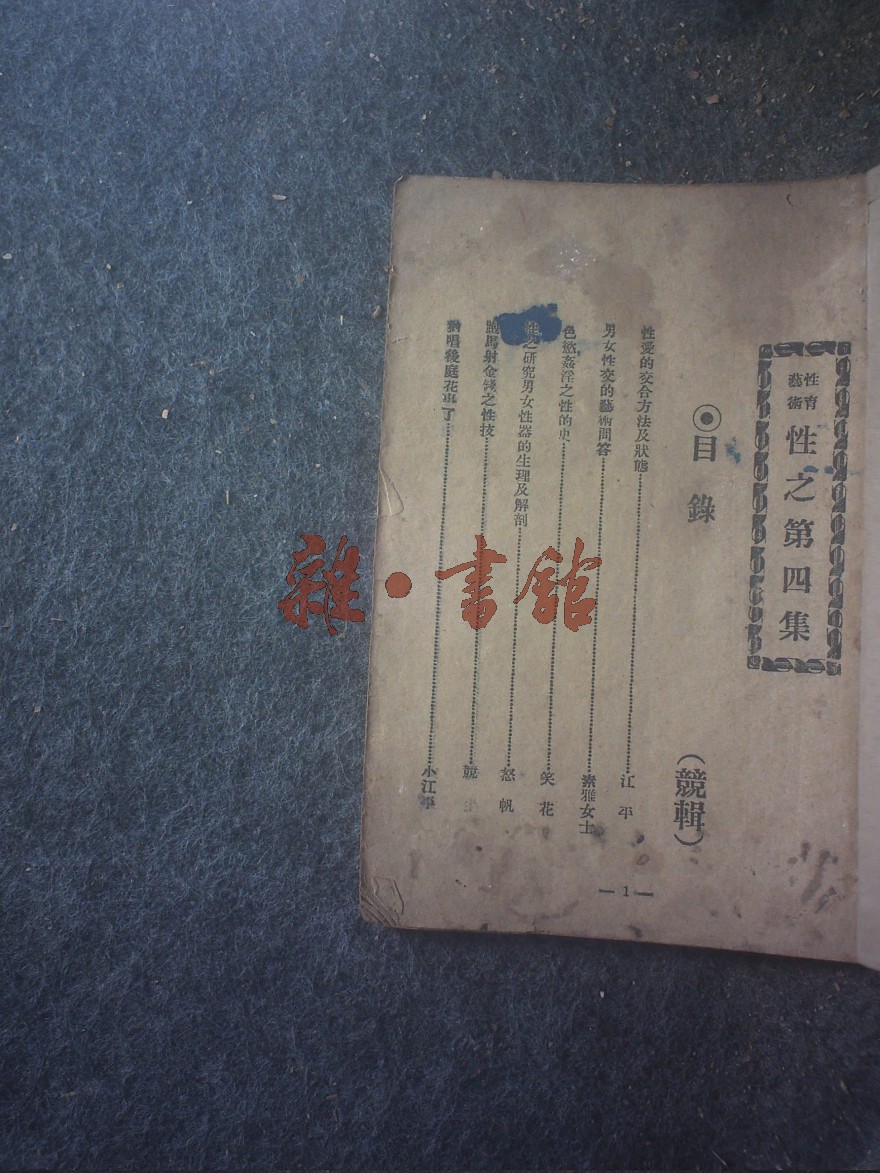 性育藝術 性之第四集
◉目錄 (競輯)
性愛的交合方法及狀態……江平
男女性交的藝術問答……素雅女士
色慾姦淫之性的史……笑花
性之研究男女性器的生理及解剖……怒帆
跑馬射金錢之性技……競生
猶唱後庭花事了……小江平
— 1 —
雜·書館